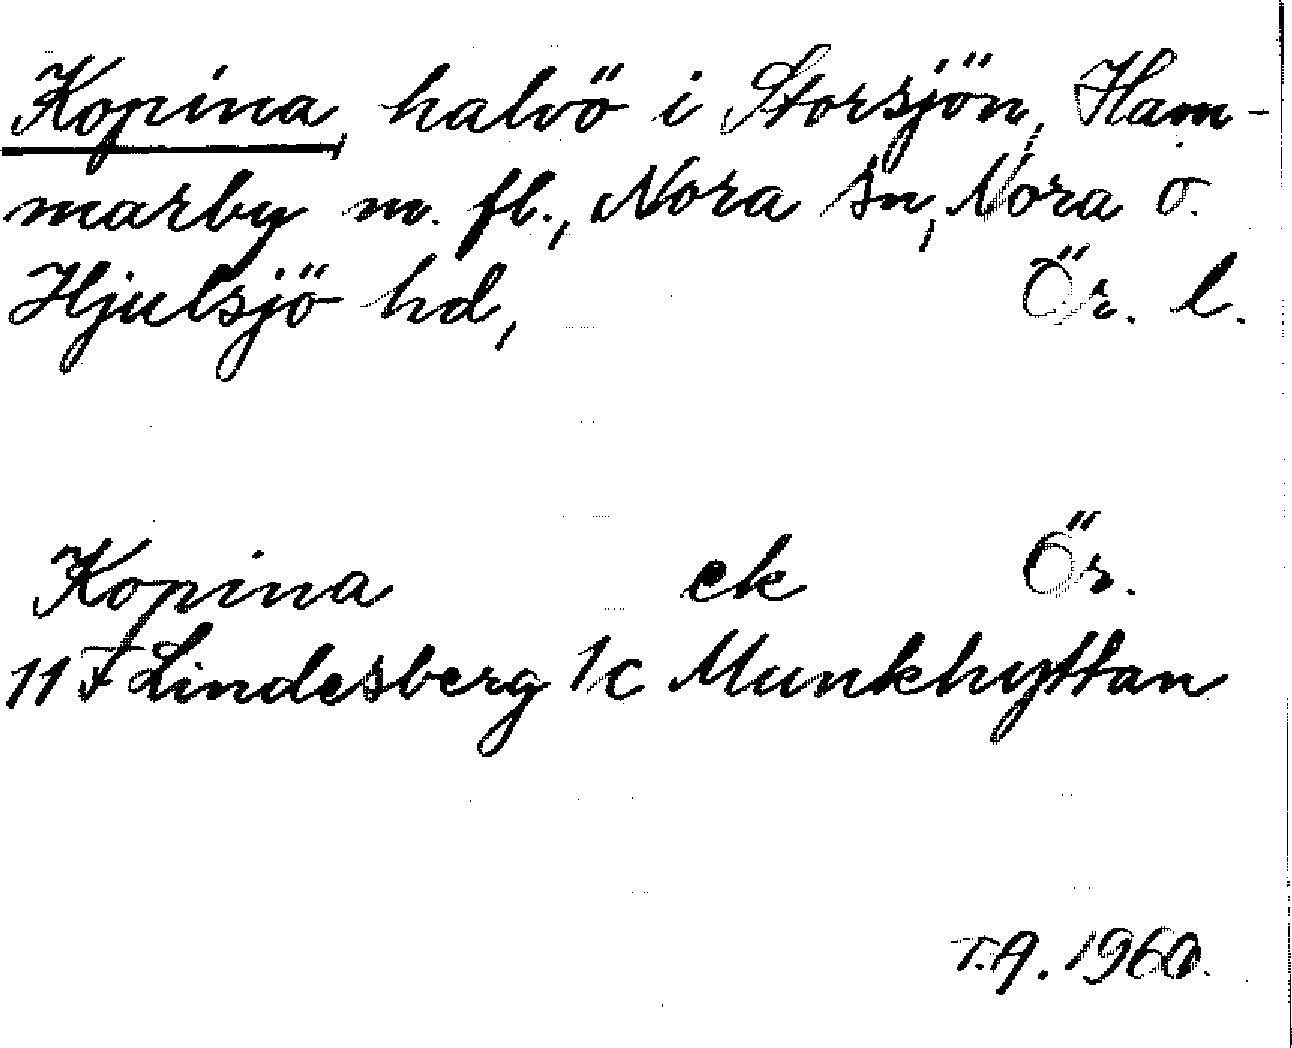 Kopina, halvö i Storsjön, Ham-
marby m. fl., Nora sn, Nora o.
Hjulsjö hd, Ör. l.
Kopina ek Ör.
11 F Lindesberg 1c Munkhyttan
T.A. 1960.